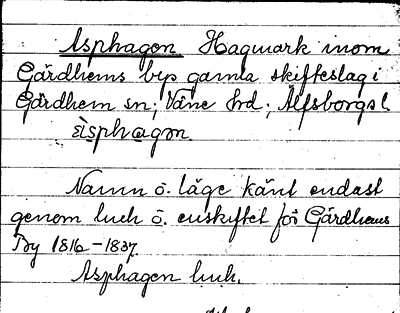 Asphagen Hagmark inom
Gärdhems bys gamla skifteslag i
Gärdhem sn; Väne hrd; Älfsborgs l.
Namn o. läge känt endast
genom luch o. enskiftet för Gärdhems
By 1816-1837.
Asphagen luch.